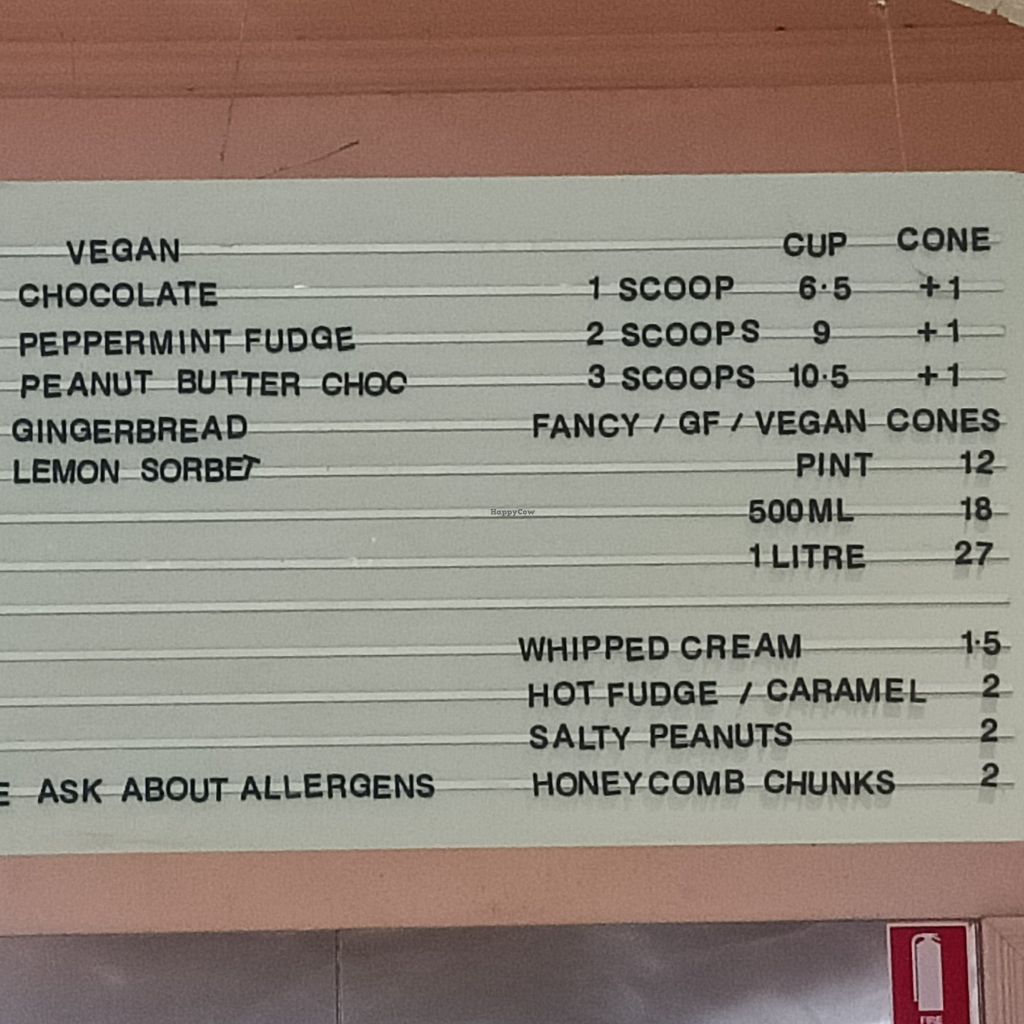 VEGAN CUP CONE
CHOCOLATE 1 SCOOP 6·5 +1
PEPPERMINT FUDGE 2 SCOOPS 9 +1
PEANUT BUTTER CHOC 3 SCOOPS 10·5 +1
GINGERBREAD FANCY / GF / VEGAN CONES
LEMON SORBET PINT 12
500ML 18
HappyCow
1 LITRE 27
WHIPPED CREAM 1·5
HOT FUDGE / CARAMEL 2
SALTY PEANUTS 2
E ASK ABOUT ALLERGENS HONEYCOMB CHUNKS 2
FIRE